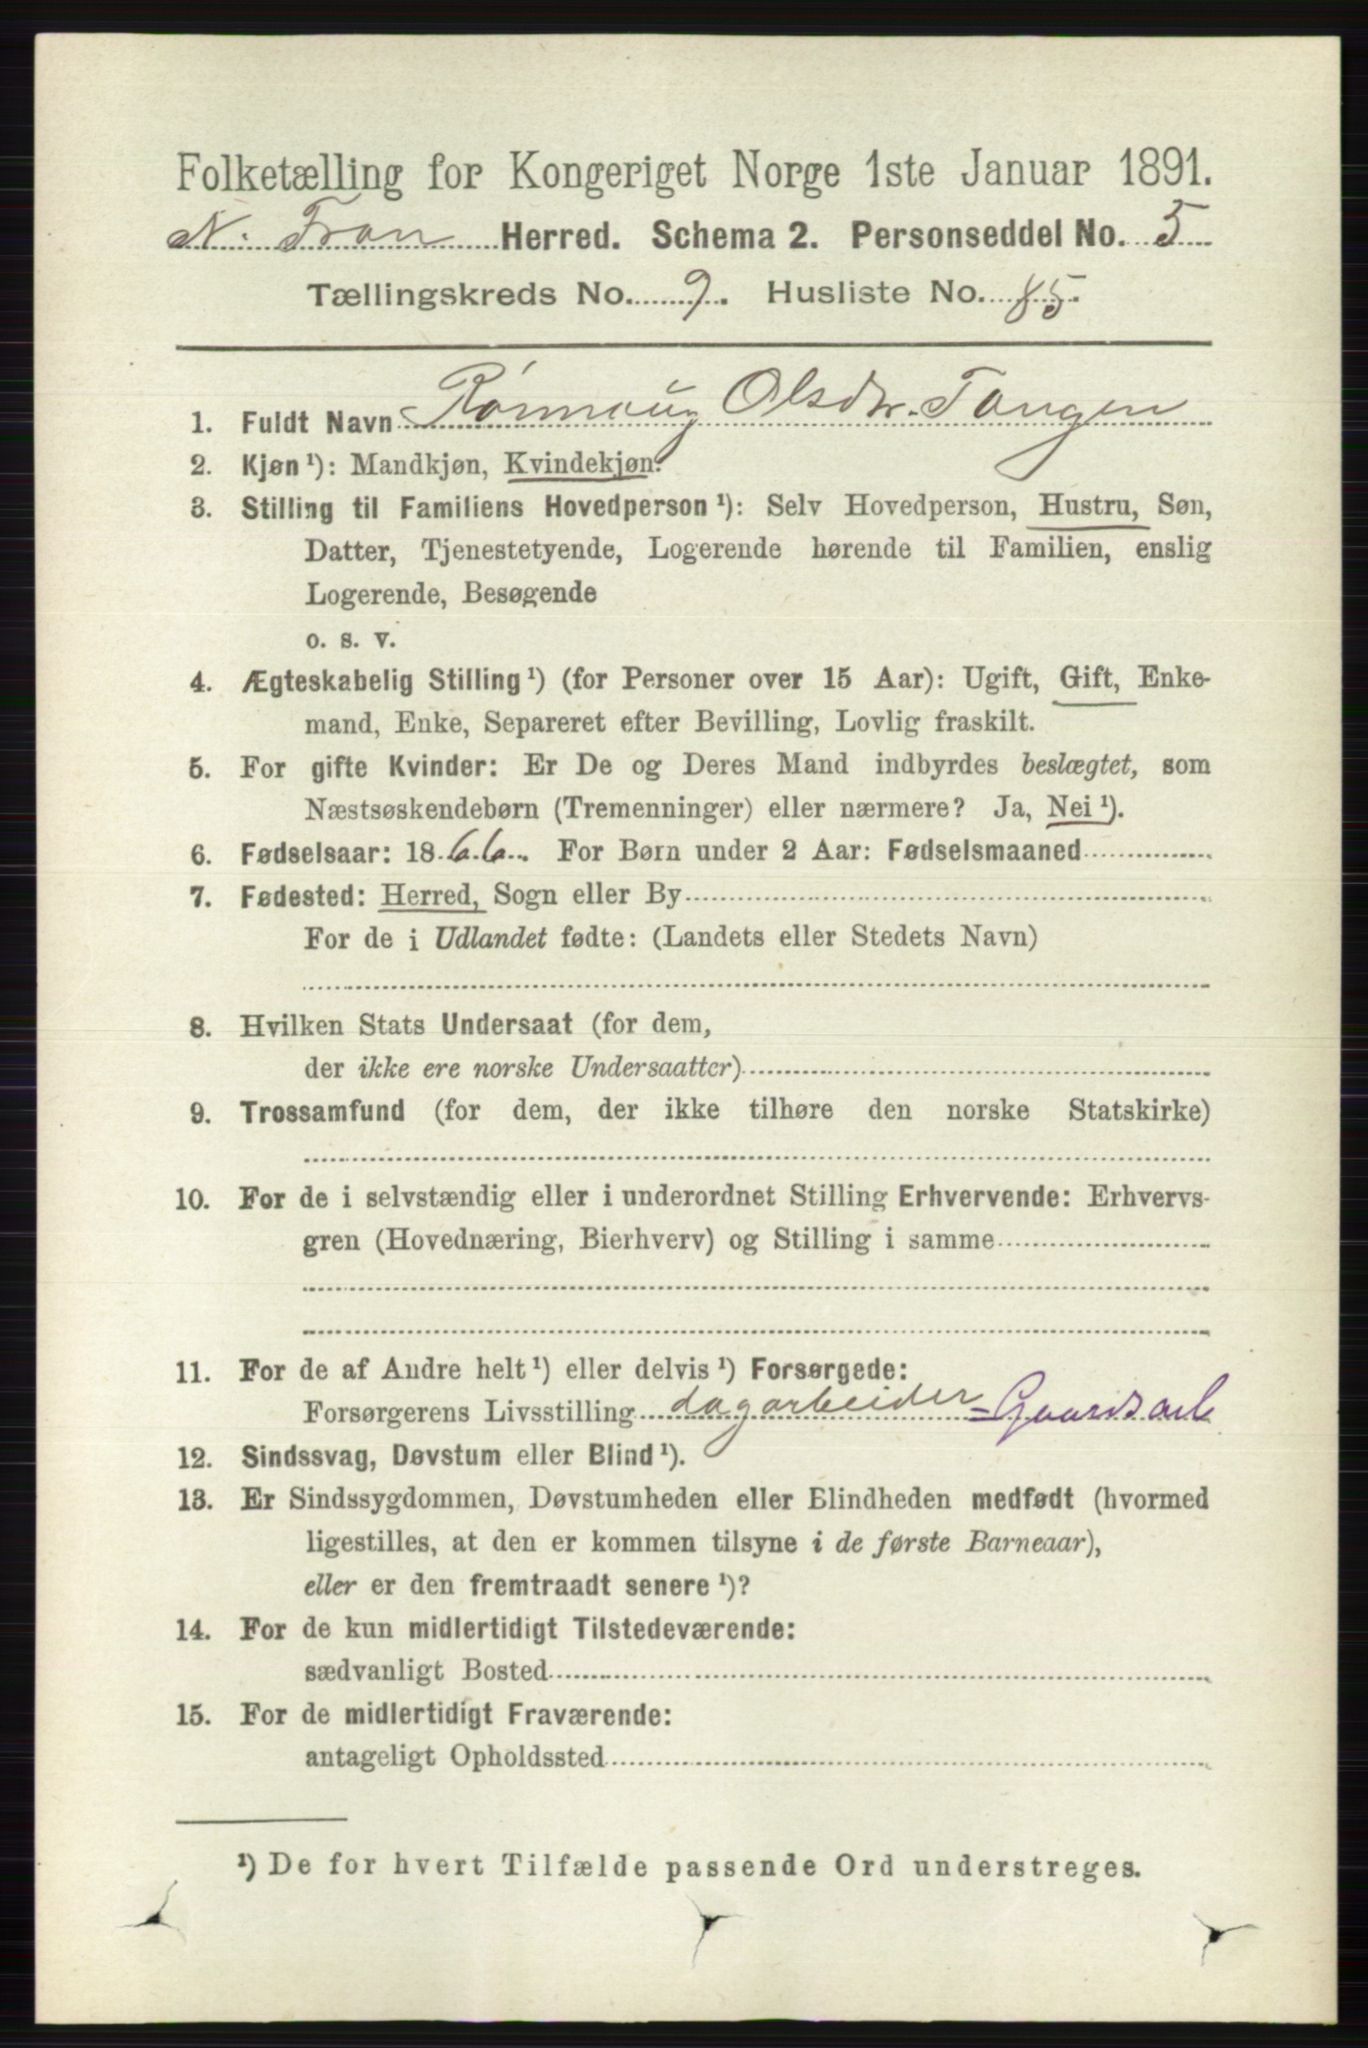 Folketælling for Kongeriget Norge 1ste Januar 1891.
N. Fron Herred. Schema 2. Personseddel No. 5
Tællingskreds No. 9. Husliste No. 85.
1. Fuldt Navn Rønnaug Olsdtr. Tangen
2. Kjøn ¹): Mandkjøn, Kvindekjøn.
3. Stilling til Familiens Hovedperson ¹): Selv Hovedperson, Hustru, Søn,
Datter, Tjenestetyende, Logerende hørende til Familien, enslig
Logerende, Besøgende
o. s. v.
4. Ægteskabelig Stilling ¹) (for Personer over 15 Aar): Ugift, Gift, Enke-
mand, Enke, Separeret efter Bevilling, Lovlig fraskilt.
5. For gifte Kvinder: Er De og Deres Mand indbyrdes beslægtet, som
Næstsøskendebørn (Tremenninger) eller nærmere? Ja, Nei ¹).
6. Fødselsaar: 1866. For Børn under 2 Aar: Fødselsmaaned
7. Fødested: Herred, Sogn eller By
For de i Udlandet fødte: (Landets eller Stedets Navn)
8. Hvilken Stats Undersaat (for dem,
der ikke ere norske Undersaatter)
9. Trossamfund (for dem, der ikke tilhøre den norske Statskirke)
10. For de i selvstændig eller i underordnet Stilling Erhvervende: Erhvervs-
gren (Hovednæring, Bierhverv) og Stilling i samme
11. For de af Andre helt ¹) eller delvis ¹) Forsørgede:
Forsørgerens Livsstilling dagarbeider = Gaardsarb
12. Sindssvag, Døvstum eller Blind ¹).
13. Er Sindssygdommen, Døvstumheden eller Blindheden medfødt (hvormed
ligestilles, at den er kommen tilsyne i de første Barneaar),
eller er den fremtraadt senere ¹)?
14. For de kun midlertidigt Tilstedeværende:
sædvanligt Bosted
15. For de midlertidigt Fraværende:
antageligt Opholdssted
¹) De for hvert Tilfælde passende Ord understreges.